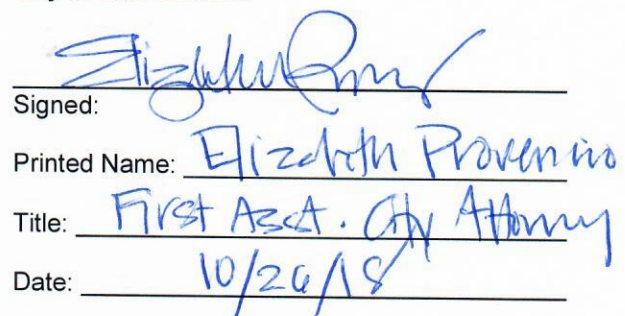 Signed:
Printed Name: Elizabeth Provencio
Title: First Asst. City Attorney
Date: